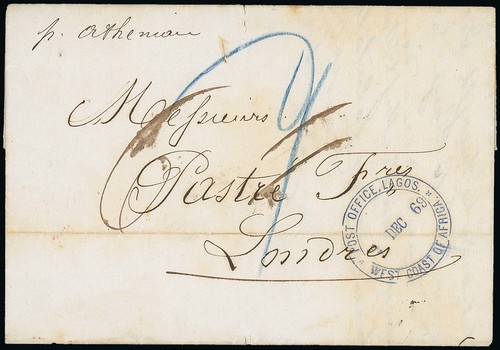 p. Athenian
Messieurs
Pastré Fres
Londres
POST OFFICE, LAGOS.
DEC 69
WEST COAST OF AFRICA.